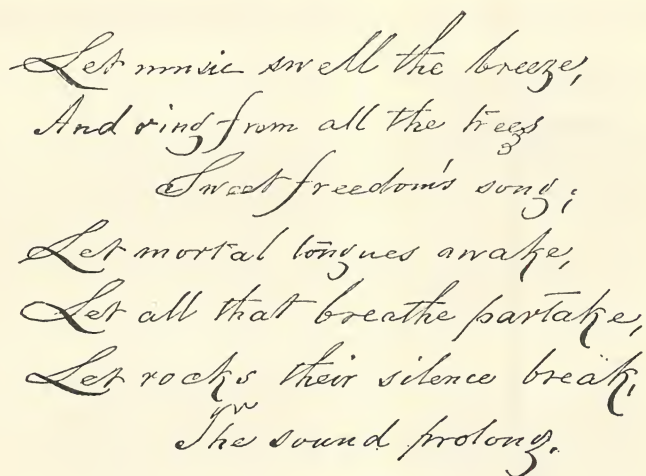 Let music swell the breeze,
And ring from all the trees
Sweet freedom's song;
Let mortal tongues awake,
Let all that breathe partake,
Let rocks their silence break,
The sound prolong.